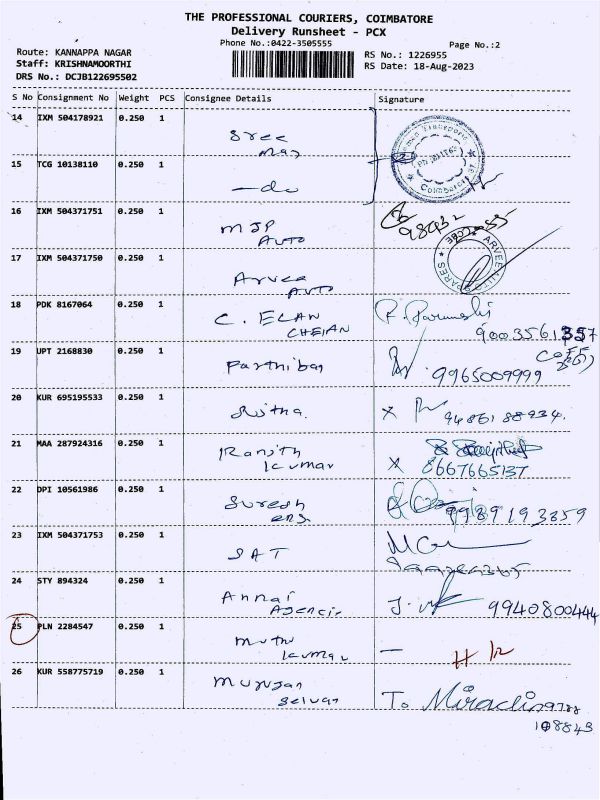 THE PROFESSIONAL COURIERS, COIMBATORE
Delivery Runsheet - PCX
Phone No.:0422-3505555
Page No.:2
Route: KANNAPPA NAGAR
Staff: KRISHNAMOORTHI
DRS No.: DCJB122695502
RS No.: 1226955
RS Date: 18-Aug-2023
S No Consignment No Weight PCS Consignee Details Signature
14 IXM 504178921 0.250 1 Sree
15 TCG 10138110 0.250 1 -do
16 IXM 504371751 0.250 1 MJP
AUTO
17 IXM 504371750 0.250 1 Arvee
AUTO
18 PDK 8167064 0.250 1 C. ELAN
CHEIAN
9003561357
19 UPT 2168830 0.250 1 Parthiban 9965009999
20 KUR 695195533 0.250 1 9486188934.
21 MAA 287924316 0.250 1 Ranjith
kumar
X 8667665137
22 DPI 10561986 0.250 1 Suresh 9789193359
23 IXM 504371753 0.250 1 SAT
24 STY 894324 0.250 1 Annai
Agencies
9940800444
25 PLN 2284547 0.250 1 Muthu
kumar
26 KUR 558775719 0.250 1 Murugan
Selvan
To Miraclin 9788
108843